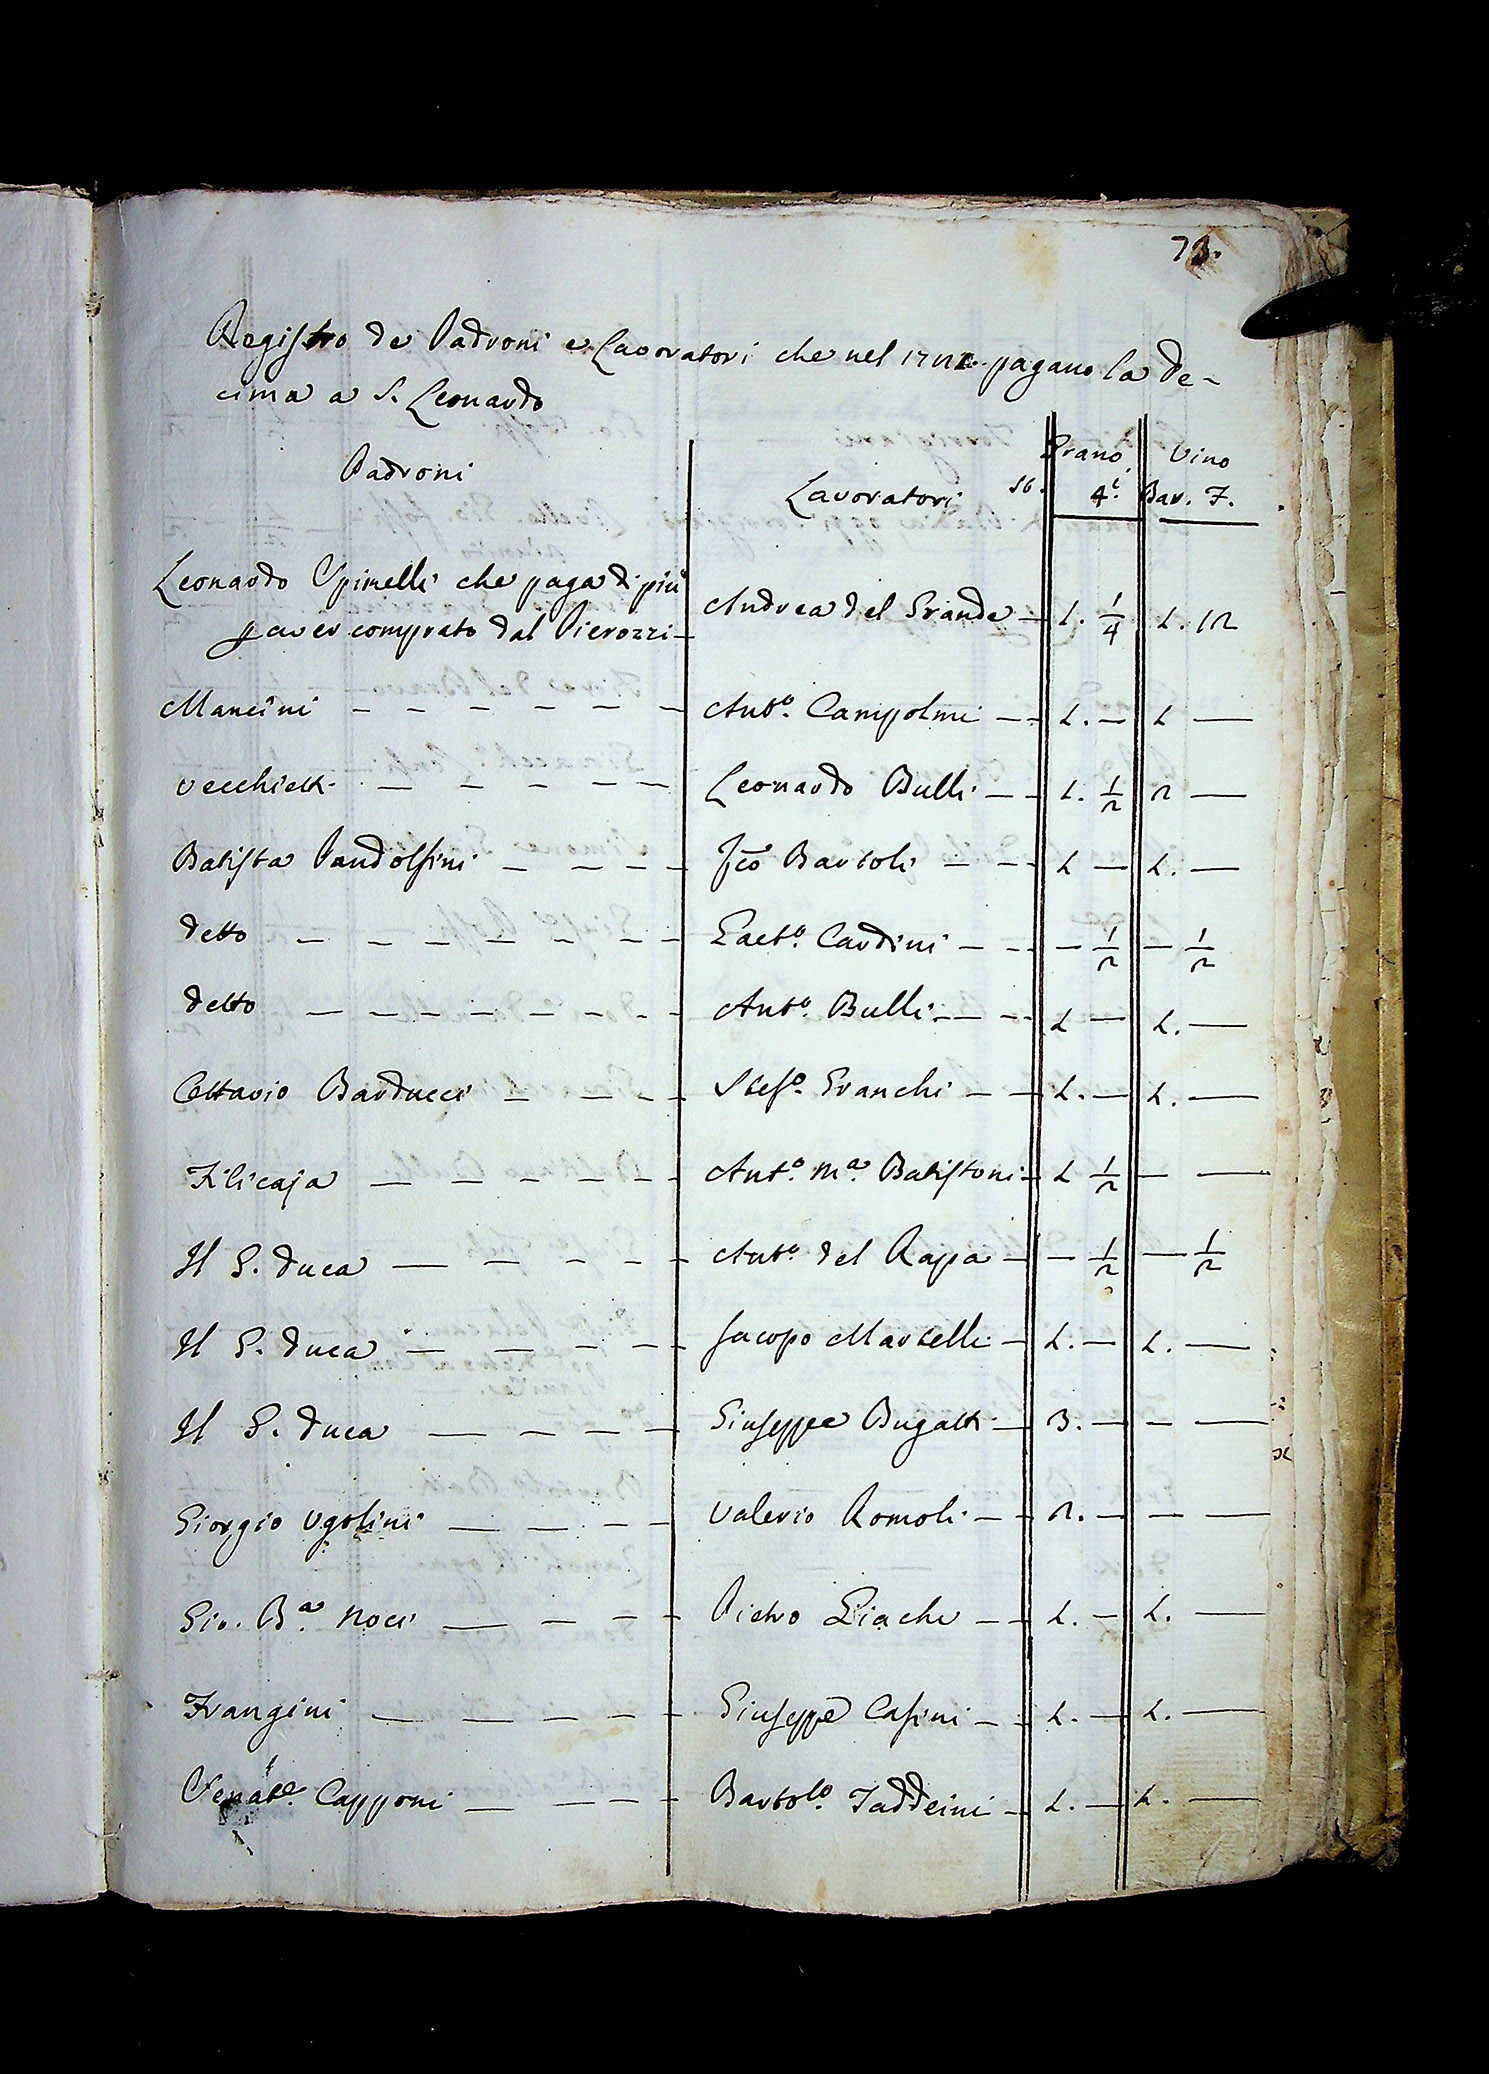 73.
Registro de Padroni e Lavoratori che nel pagano la De-
cima a S. Leonardo
Padroni Lavoratori Grano Vino
St. 4.i Bar. F.
Leonardo Spinelli che paga di più
p aver comprato dal Pierozzi – Andrea del Grande – 1. 1/4 1. 12
Mancini – – – – – – Ant.o Campolmi – – 1. – 1 –
Vecchietti – – – – – Leonardo Bulli – – 1. 1/2 2 –
Batista Pandolfini – – – – Fco Bartoli – – – 1 – 1. –
detto – – – – – – – – Gaet.o Cardini – – – – 1/2 – 1/2
detto – – – – – – – – Ant.o Bulli – – – – 1 – 1. –
Ottavio Barducci – – – – Stef.o Franchi – – 1. – 1. –
Filicaja – – – – – – Ant.o M.a Batistoni – 1 1/2 – –
Il G. Duca – – – – Ant.o del Rapa – – 1/2 – 1/2
Il G. Duca – – – – – Jacopo Martelli – 1. – 1. –
Il G. Duca – – – – Giuseppe Bugatti – 3. – – –
Giorgio Ugolini – – – – Valerio Romoli – – 2. – – –
Gio. B.a Noci – – – – Pietro Giachi – – 1. – 1. –
Frangini – – – – – Giuseppe Casini – – 1. – 1. –
Senat.e Capponi – – – – Bartol.o Taddeini – 1. – 1. –